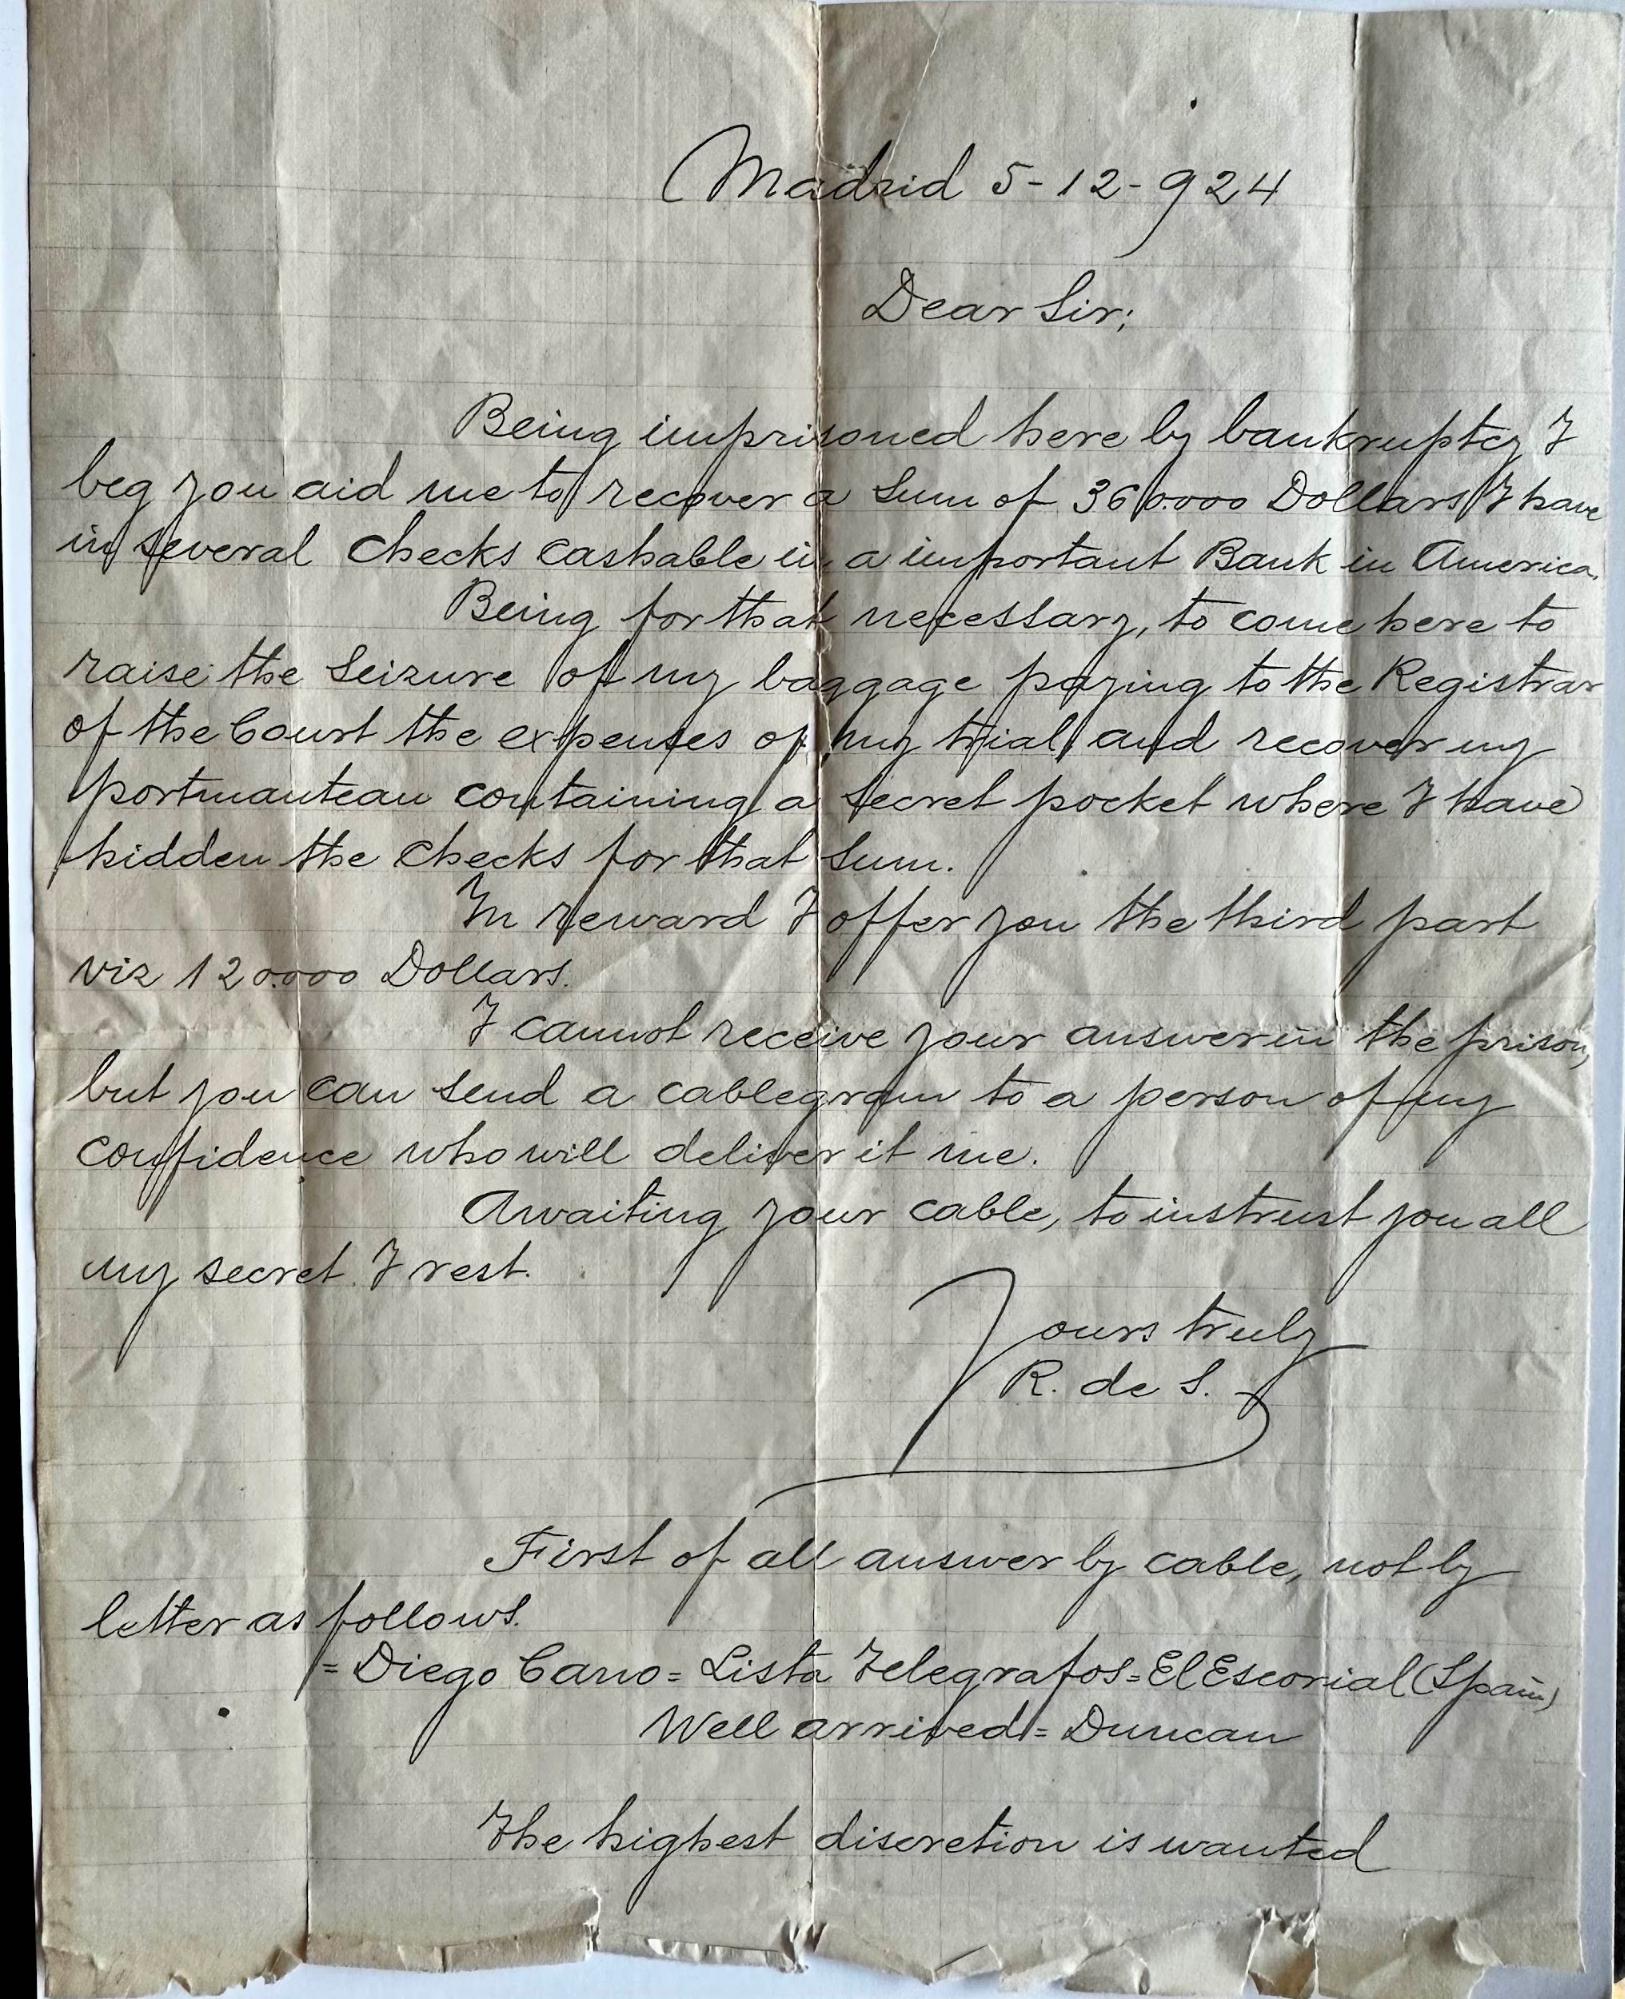 Madrid 5-12-924
Dear Sir;
Being imprisoned here by bankruptcy I
beg you aid me to recover a sum of 360.000 Dollars I have
in several checks cashable in a important Bank in America.
Being for that necessary, to come here to
raise the seizure of my baggage paying to the Registrar
of the Court the expenses of my trial, and recover my
portmanteau containing a secret pocket where I have
hidden the checks for that sum.
In reward I offer you the third part
viz 120.000 Dollars.
I cannot receive your answer in the prison,
but you can send a cablegram to a person of my
confidence who will deliver it me.
Awaiting your cable, to instrust you all
my secret. I rest.
Yours truly
R. de S.
First of all answer by cable, not by
letter as follows.
=Diego Cano=Lista Telegrafos=El Escorial (Spain)
Well arrived=Duncan
The highest discretion is wanted